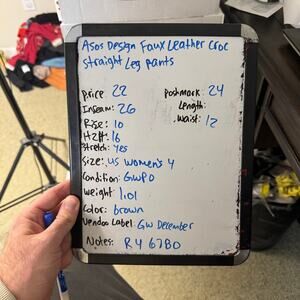 Asos Design Faux Leather Croc
straight Leg pants
price: 22
poshmark: 24
Inseam: 26
Length:
Rise: 10
waist: 12
H2H: 16
stretch: yes
Size: US women's 4
Condition: GWPD
weight: 1.01
Color: brown
Vendoo Label: GW December
Notes: R4 6780